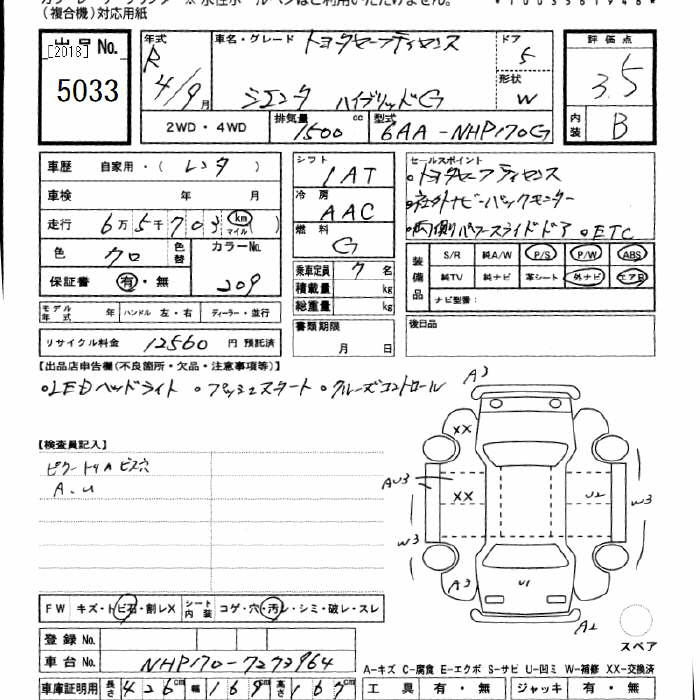 (複合機)対応用紙
出品No.
[2018]
5033
年式 R 4/9月
車名・グレード トヨタセーフティセンス
シエンタ ハイブリッドG
ドア 5
形状 W
評価点
3.5
内装 B
2WD・4WD
排気量 1500 cc
型式 6AA-NHP170G
車歴 自家用・(レンタ)
車検 年 月
走行 6万5千703 km マイル ( )
色 クロ 色替
カラーNo. 209
保証書 有・無
シフト 1AT
冷房 AAC
燃料 G
乗車定員 7名
積載量 kg
総重量 kg
セールスポイント
・トヨタセーフティセンス
・社外ナビ・バックモニター
・両側パワースライドドア ・ETC
装備品 S/R 純A/W P/S P/W ABS
純TV 純ナビ 革シート 外ナビ エアB
ナビ型番:
モデル年式 年 ハンドル 左・右 ディーラー・並行
書類期限 月 日
後日品
リサイクル料金 12560 円 預託済
【出品店申告欄(不良箇所・欠品・注意事項等)】
・LEDヘッドライト ・プッシュスタート ・クルーズコントロール
【検査員記入】
ピラートリム ビス穴
A.U
A3
XX
AU3
XX
U2
W3
W3
A3
U1
A2
スペア
FW キズ・ト石・割レX シート内装 コゲ・穴・汚レ・シミ・破レ・スレ
登録No.
車台No. NHP170-7273964
A-キズ C-腐食 E-エクボ S-サビ U-凹ミ W-補修 XX-交換済
車庫証明用 長さ 426cm 幅 169cm 高さ 167cm
工具 有・無 ジャッキ 有・無